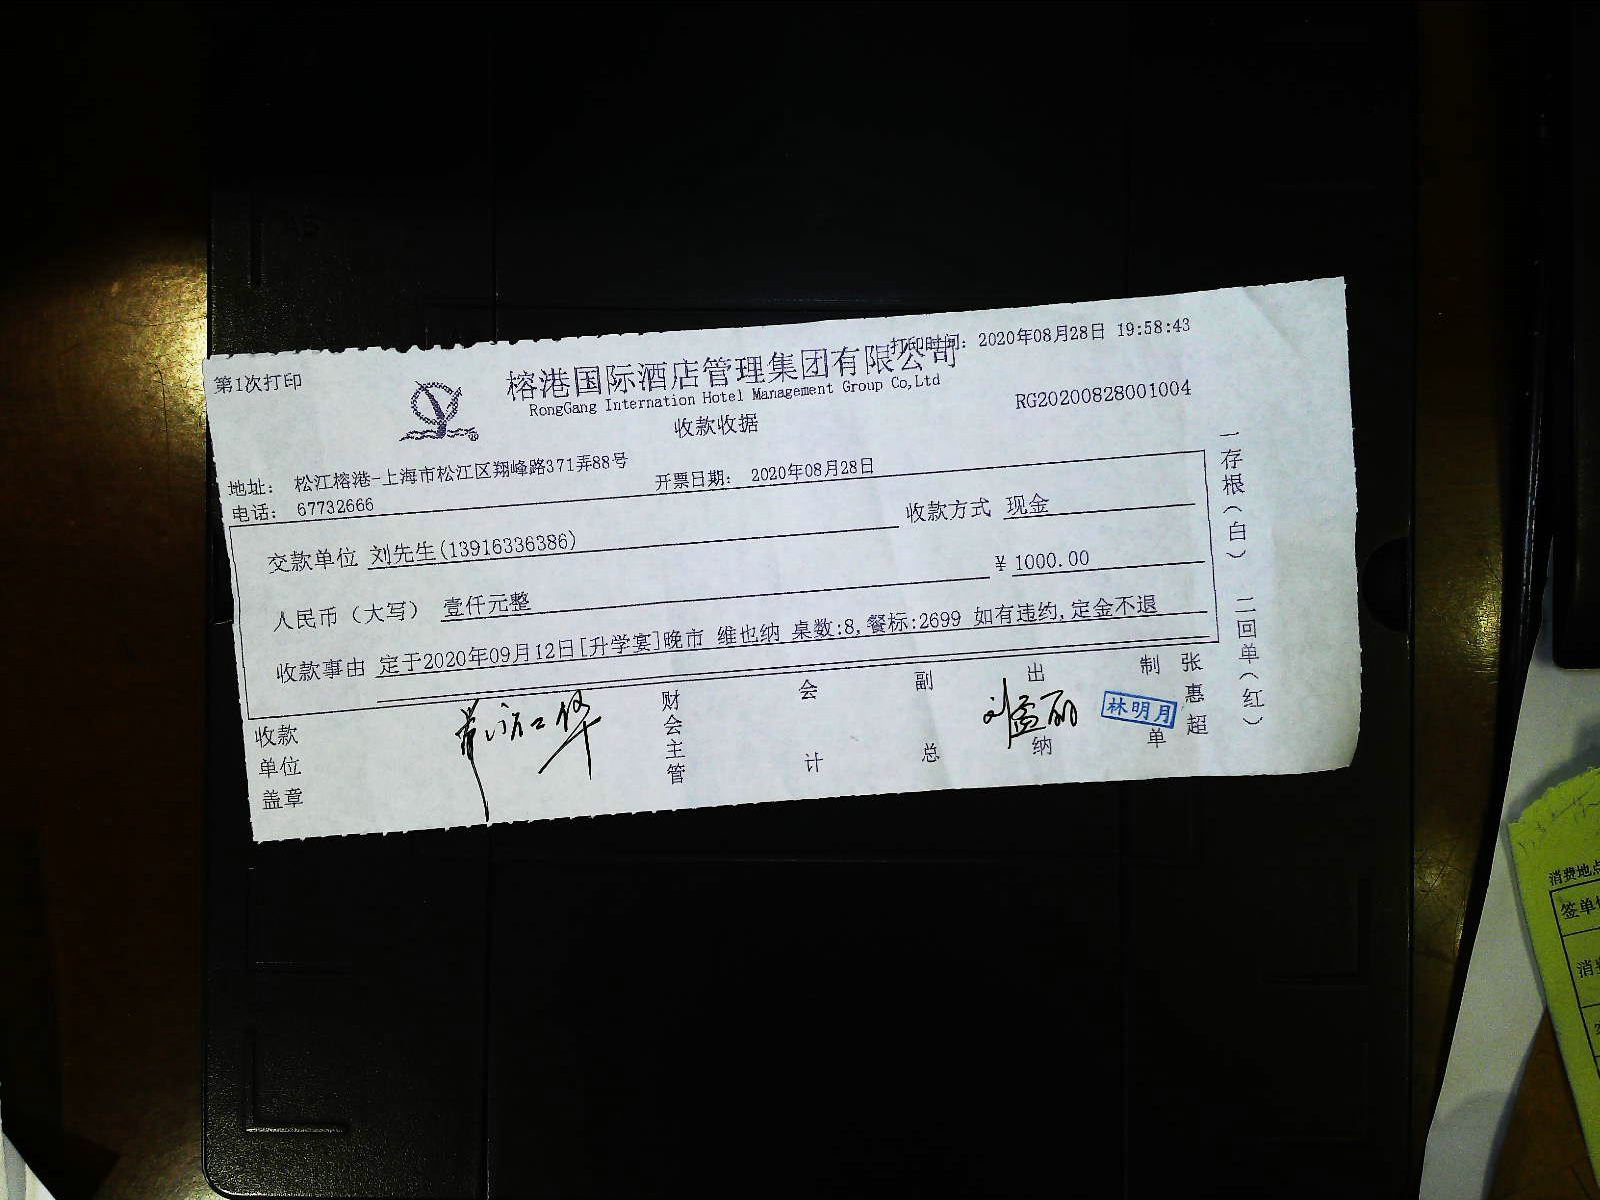 第1次打印
打印时间: 2020年08月28日 19:58:43
榕港国际酒店管理集团有限公司
RongGang Internation Hotel Management Group Co,Ltd
RG20200828001004
收款收据
地址: 松江榕港-上海市松江区翔峰路371弄88号
开票日期: 2020年08月28日
电话: 67732666
交款单位 刘先生(13916336386)
收款方式 现金
人民币（大写） 壹仟元整
¥ 1000.00
收款事由 定于2020年09月12日[升学宴]晚市 维也纳 桌数:8,餐标:2699 如有违约,定金不退
一存根(白) 二回单(红)
收款单位盖章
财会主管
会计
副总
出纳
刘孟丽
制单
张惠超
林明月
消费地点
签单
消费